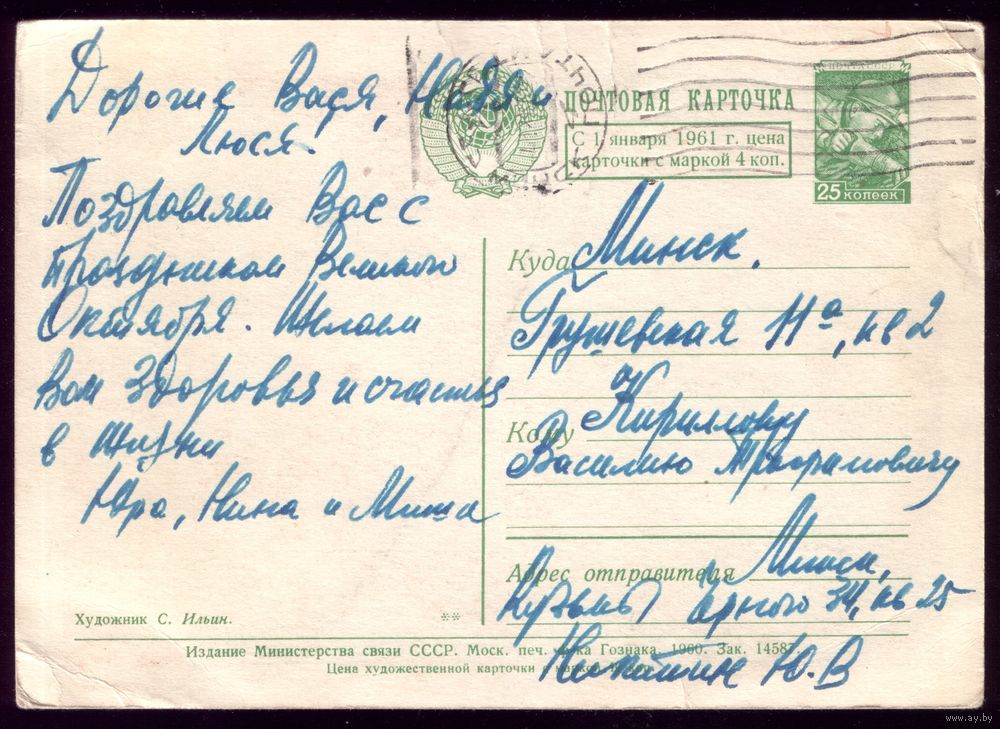 Дорогие Вася, Надя и
Люся.
Поздравляем Вас с
праздником Великого
Октября. Желаем
Вам здоровья и счастья
в жизни
Юра, Нина и Миша
ПОЧТОВАЯ КАРТОЧКА
С 1 января 1961 г. цена
карточки с маркой 4 коп.
ПОЧТА СССР
25 КОПЕЕК
Куда Минск,
Грушевская 11а, кв 2
Кому Кириллову
Василию Трофимовичу
Адрес отправителя Минск,
Кузьмы Чорного 34, кв 25
Никитин Ю.В
Художник С. Ильин.
**
Издание Министерства связи СССР. Моск. печ. ф-ка Гознака. 1960. Зак. 14587.
Цена художественной карточки с маркой коп.
www.ay.by